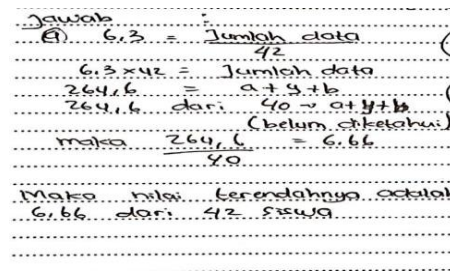 Jawab :
(a) 6.3 = Jumlah data
42
6.3 x 42 = Jumlah data
264,6 = a + y + b
264,6 dari 40 ~ a + y + b
(belum diketahui)
maka 264,6 = 6.66
40
Maka nilai terendahnya adalah
6,66 dari 42 siswa